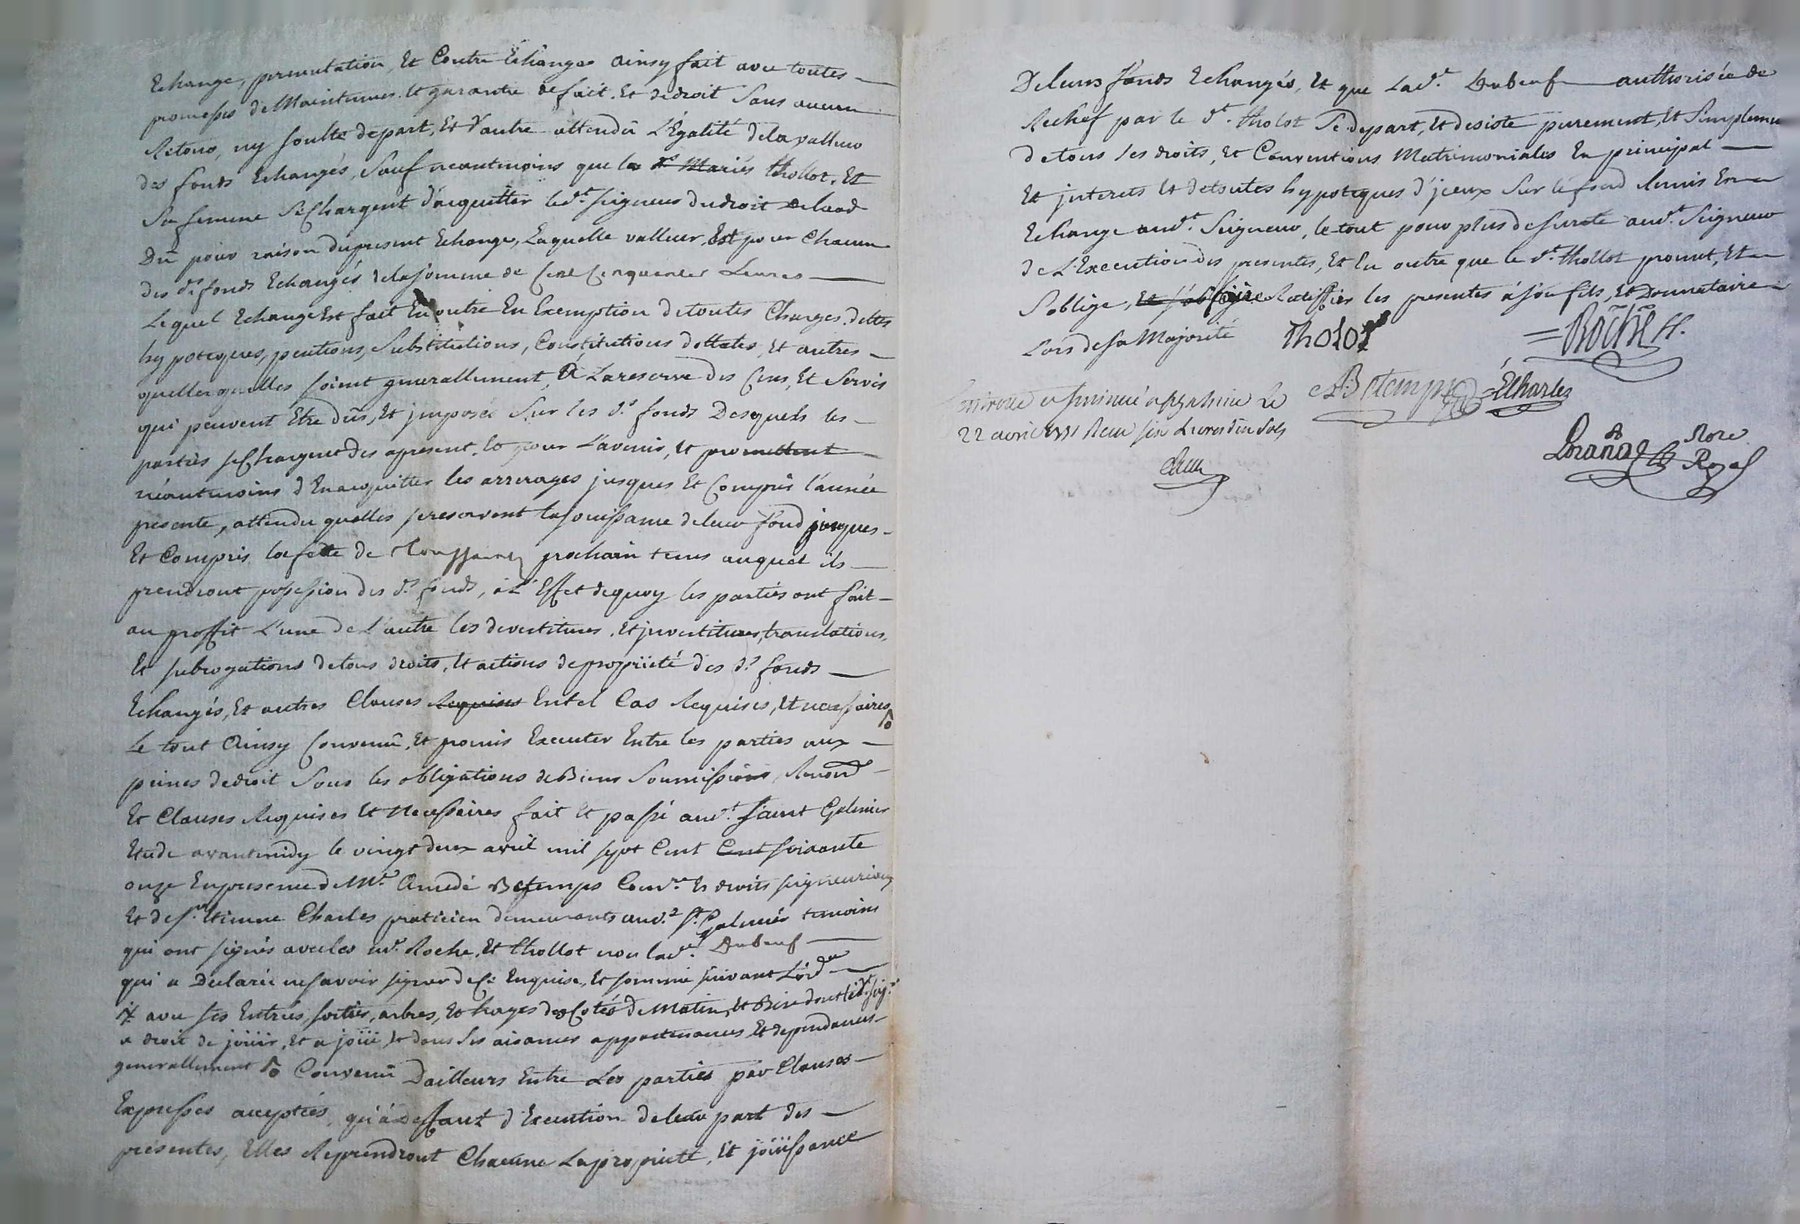 Echange, permutation, Et Contre Echanges ainsy fait avec toutes
promesses de Maintenues Et garantie de fait Et de droit Sans aucun
Retour, ny soulte de part, Et d'autre attendu L'Egalité de la valleur
des fonds Echangés, Sauf neantmoins que les Mariés thollot, Et
Sa femme Se chargent d'acquitter led.t seigneur du droit de laod
Dû pour raison du present Echange, Laquelle valleur Est pour Chacun
des d.s fonds Echangés de la somme de Cent Cinquante Livres
Lequel Echange Est fait En outre En Exemption de toutes Charges, dettes
hypoteques, pentions, Substitutions, Constitutions dottales, Et autres
quelles quelles soient generallement, à La reserve des Cens, Et Servis
qui peuvent Être dûs, Et imposés Sur les d.s fonds Desquels les
parties se chargent des apresent, Et pour L'avenir, Et promettent
néantmoins d'En acquitter les arrerages jusques Et Compris l'année
presente, attendu quelles se reservent la jouissance de leur fond jusques
Et Compris la fette de Toussaint prochain tems auquel ils
prendront possession des d.s fonds, à L'Effet de quoy les parties ont fait
au proffit L'une de L'autre les devestitures, Et investitures, translations,
Et subrogations de tous droits, Et actions de propriété des d.s fonds
Echangés, Et autres Clauses Requises En tel Cas Requises, Et necessaires
Le tout Ainsy Convenû, Et promis Executer Entre les parties aux
peines de droit Sous les obligations de Biens Soumissions, Renond
Et Clauses Requises Et Necessaires fait Et passé aud.t Saint Galmier
Etude avant midy le vingt deux avril mil sept Cent Cent soixante
onze En presence de M.e Amedé Betemps Com.re Es droits seigneuriaux
Et de s.r Etienne Charles praticien demeurants aud.t S.t Galmier temoins
qui ont signés avec les Roche, Et thollot non lad. Dubeuf
qui a Declaré ne savoir signer de Ce Enquise, Et sommé suivant L'ord.ce
avec ses Entrées, sorties, arbres, Et hayes des Cotés de Matin, Et Bize dont led. seig.r
a droit de jouir, Et a joüi, Et dans Ses aisances appartenances Et dependances
generallement Convenû Dailleurs Entre Les parties par Clauses
Expresses acceptés, qu'à Deffaut d'Execution de leur part des
présentes, Elles Reprendront Chacune La propriété, Et joüissance
De leurs fonds Echangés, Et que Lad.e Dubeuf authorisée de
Rechef par le d.t tholot Se depart, Et desiste purement, Et Simplement
de tous ses droits, Et Conventions Matrimoniales En principal
Et interets Et de toutes hypoteques d'jceux Sur le fond Remis En
Echange aud.t Seigneur, le tout pour plus de sureté aud.t Seigneur
de L'Execution des presentes, Et En outre que le d.t thollot promet, Et
S'oblige, Et s'oblige Ratiffier les presentes à son fils, Et Donnataire
Lors de sa Majorité
Tholot
Roche
Betemps
ECharles
Controllé et insinué a St galmier Le
22 avril 1771 Reçu six Livres dix sols
Nore
Royal